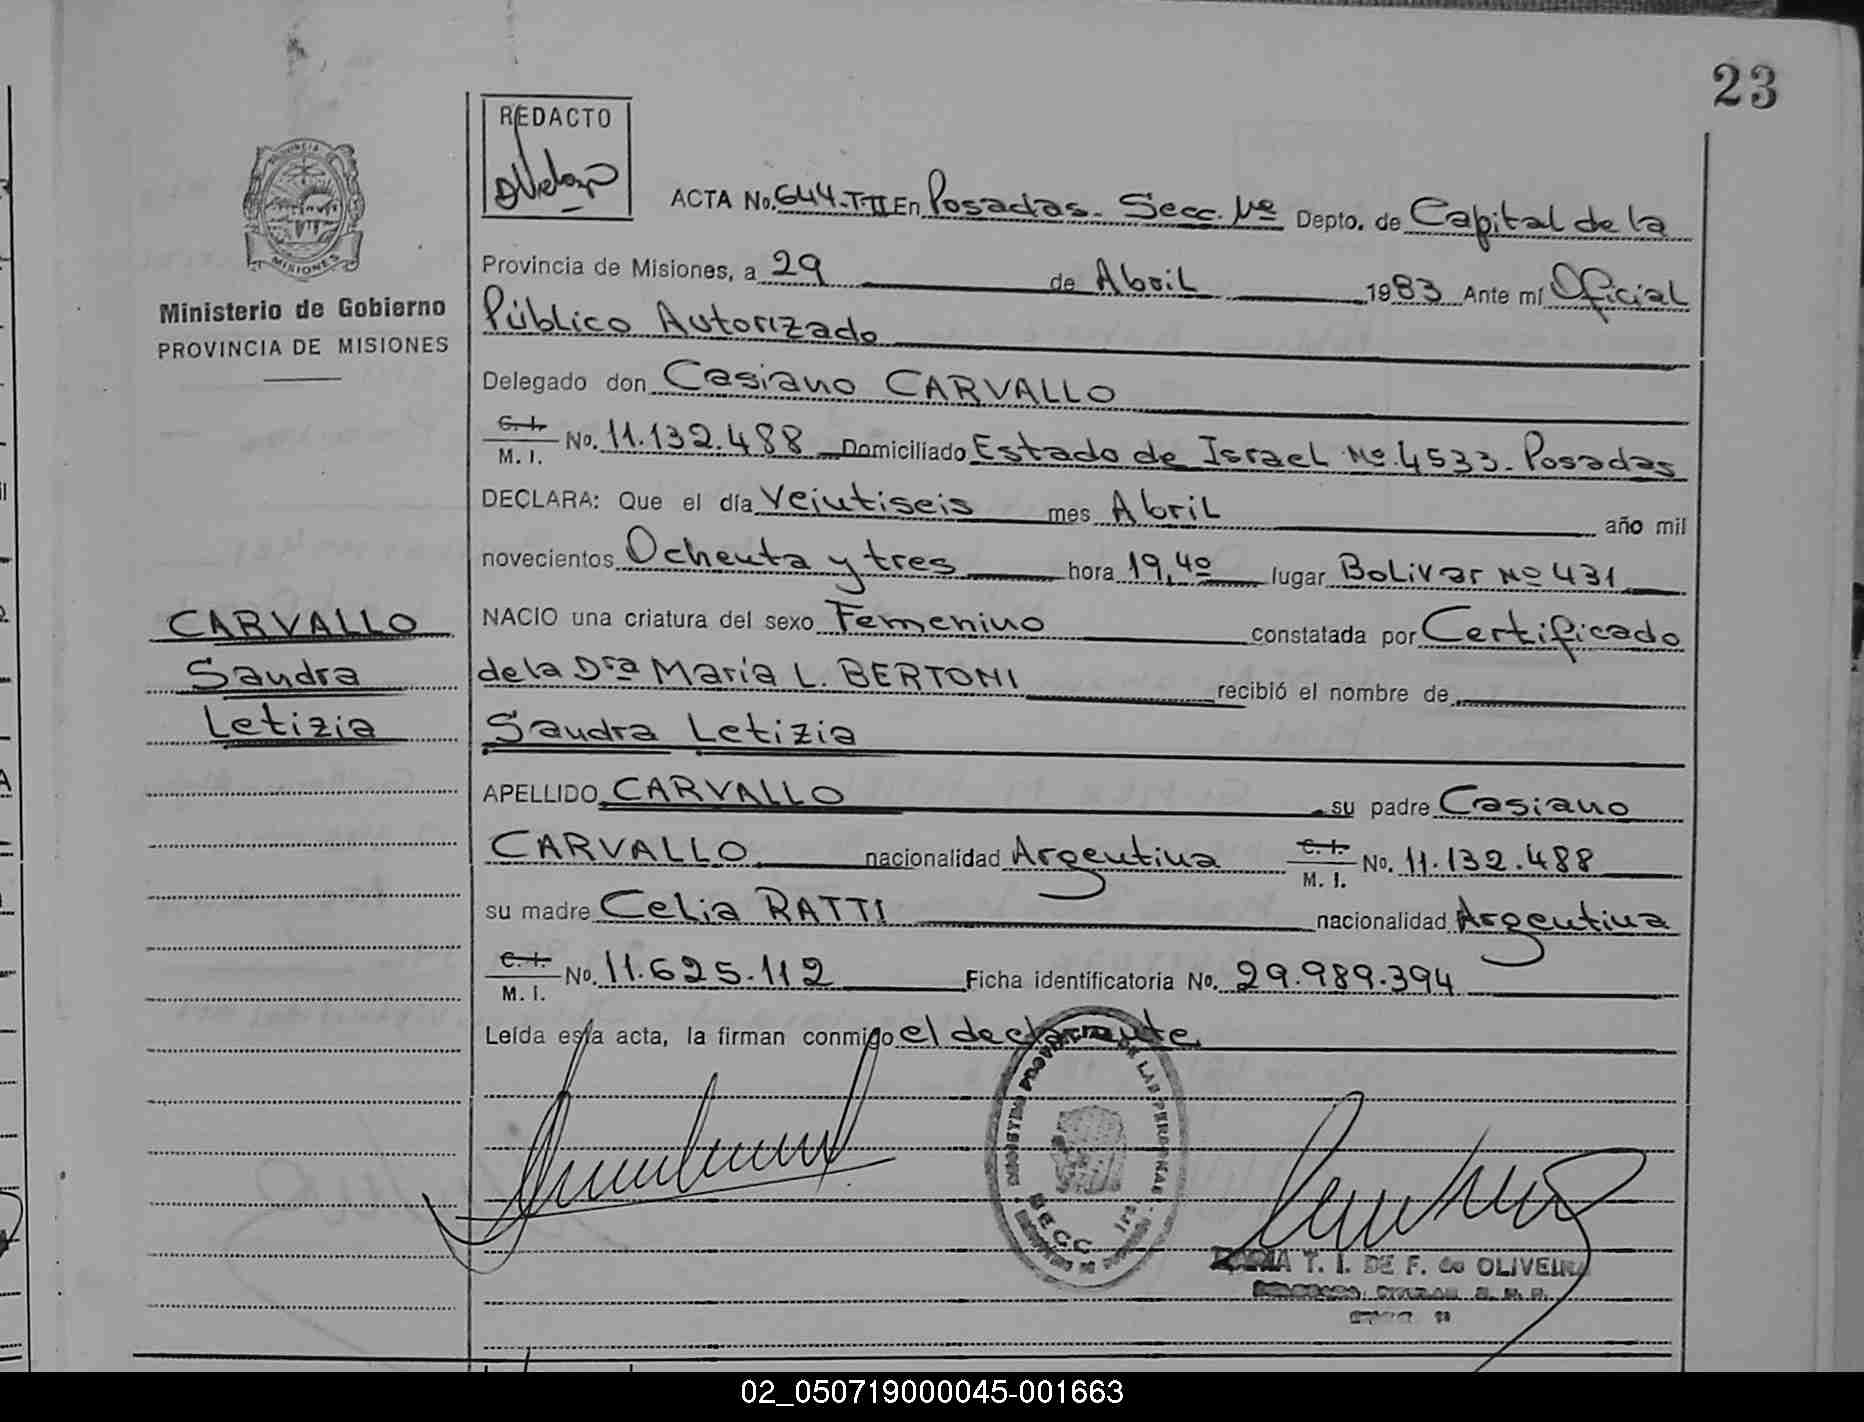 23
REDACTO
ACTA No. 644-T-II En Posadas. Secc. 1º Depto. de Capital de la
Provincia de Misiones, a 29 de Abril 1983 Ante mí Oficial
Público Autorizado
Delegado don Casiano CARVALLO
C. I. M. I. No. 11.132.488 Domiciliado Estado de Israel Nº 4533. Posadas
DECLARA: Que el día Veintiseis mes Abril año mil
novecientos Ochenta y tres hora 19,40 lugar Bolivar Nº 431
NACIO una criatura del sexo Femenino constatada por Certificado
de la Dra María L. BERTONI recibió el nombre de
Sandra Letizia
APELLIDO CARVALLO su padre Casiano
CARVALLO nacionalidad Argentina C. I. M. I. No. 11.132.488
su madre Celia RATTI nacionalidad Argentina
C. I. M. I. No. 11.625.112 Ficha identificatoria No. 29.989.394
Leída esta acta, la firman conmigo el declarante
PROVINCIA DE
MISIONES
Ministerio de Gobierno
PROVINCIA DE MISIONES
CARVALLO
Sandra
Letizia
REGISTRO PROVINCIAL DE LAS PERSONAS
SECC. 1ra
MARIA T. I. DE F. de OLIVEIRA
02_050719000045-001663